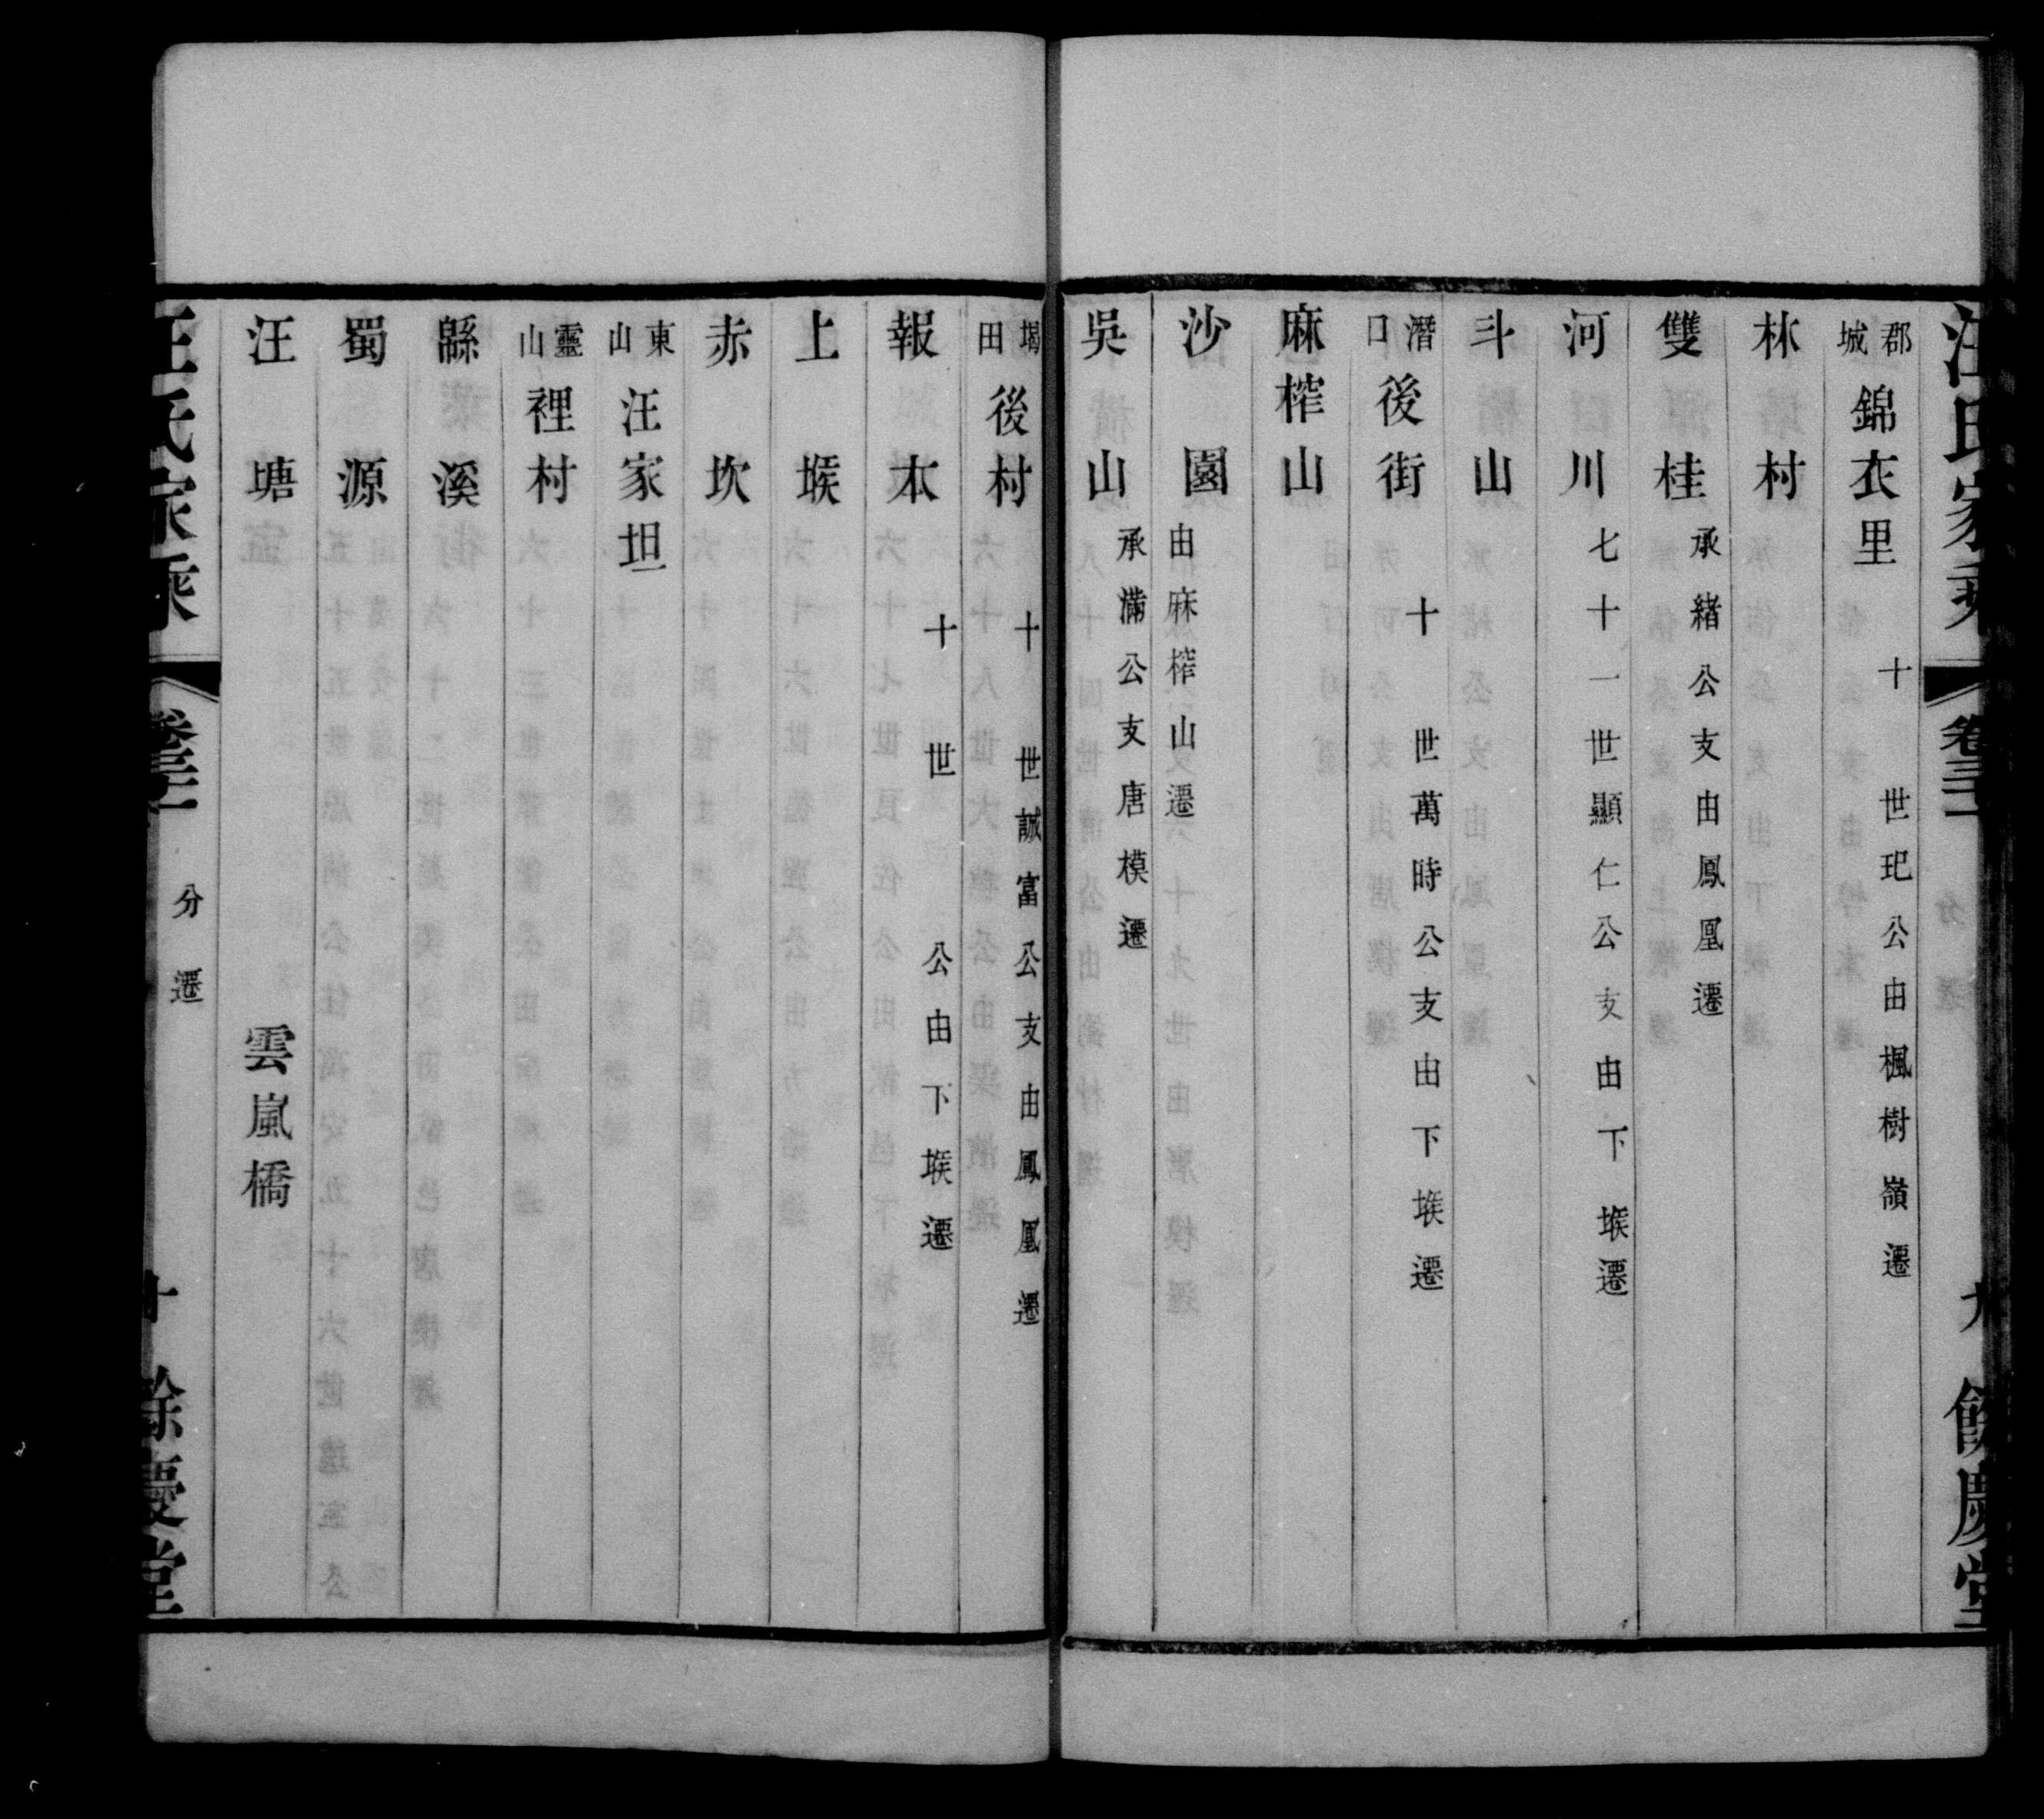 汪氏家乘 卷三十一 九 餘慶堂
郡城 錦衣里 十 世玘公由楓樹嶺遷
林村
雙桂 承緒公支由鳳凰遷
河川 七十一世顯仁公支由下堠遷
斗山
潛口 後街 十 世萬時公支由下堠遷
麻榨山
沙園 由麻榨山遷
吳山 承滿公支唐模遷
堨田 後村 十 世誠富公支由鳳凰遷
報本 十 世 公由下堠遷
上堠
赤坎
東山 汪家坦
靈山 裡村
緜溪
蜀源
汪塘 雲嵐橋
汪氏家乘 分遷 十 餘慶堂